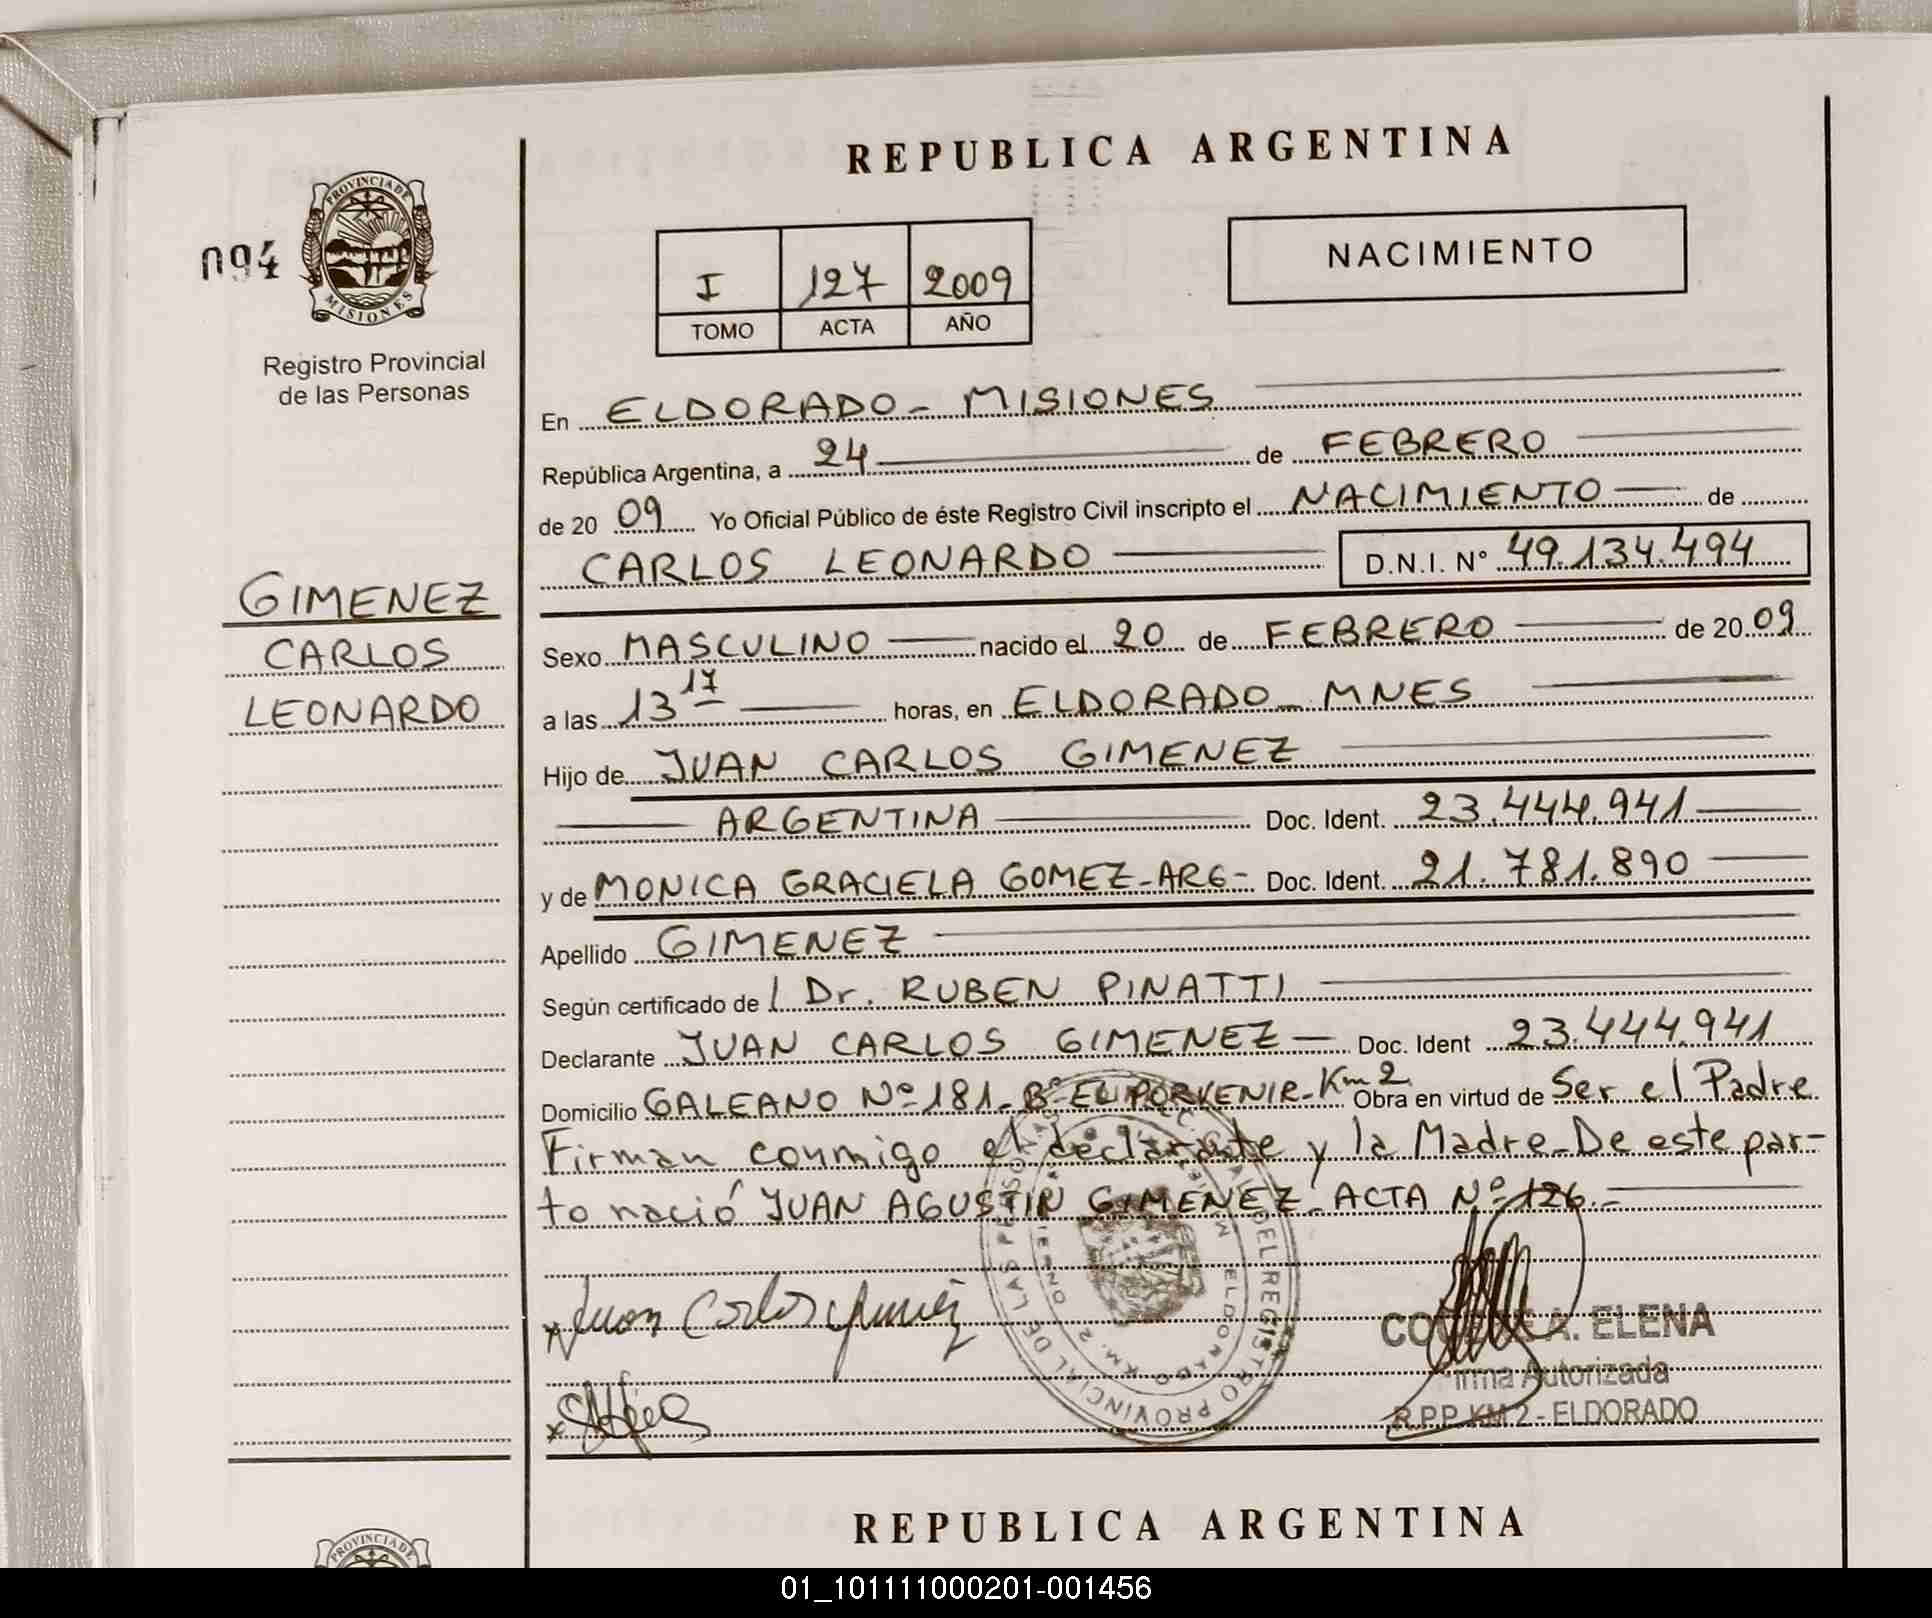 REPUBLICA ARGENTINA
094
PROVINCIA DE
MISIONES
Registro Provincial
de las Personas
I 127 2009
TOMO ACTA AÑO
NACIMIENTO
En ELDORADO - MISIONES
República Argentina, a 24 de FEBRERO
de 20 09 Yo Oficial Público de éste Registro Civil inscripto el NACIMIENTO de
CARLOS LEONARDO D.N.I. Nº 49.134.494
GIMENEZ
CARLOS
LEONARDO
Sexo MASCULINO nacido el 20 de FEBRERO de 20 09
a las 13 17 horas, en ELDORADO - MNES
Hijo de JUAN CARLOS GIMENEZ
ARGENTINA Doc. Ident. 23.444.941
y de MONICA GRACIELA GOMEZ-ARG- Doc. Ident. 21.781.890
Apellido GIMENEZ
Según certificado de Dr. RUBEN PINATTI
Declarante JUAN CARLOS GIMENEZ Doc. Ident 23.444.941
Domicilio GALEANO Nº 181-Bº EL PORVENIR-Km 2 Obra en virtud de Ser el Padre
Firman conmigo el declarante y la Madre-De este par-
to nació JUAN AGUSTIN GIMENEZ-ACTA Nº 126.-
Juan Carlos Gimenez
A. ELENA
Firma Autorizada
R.P.P. KM 2 - ELDORADO
DEL REGISTRO PROVINCIAL DE LAS PERSONAS
ELDORADO KM. 2
REPUBLICA ARGENTINA
PROVINCIA DE
01_101111000201-001456